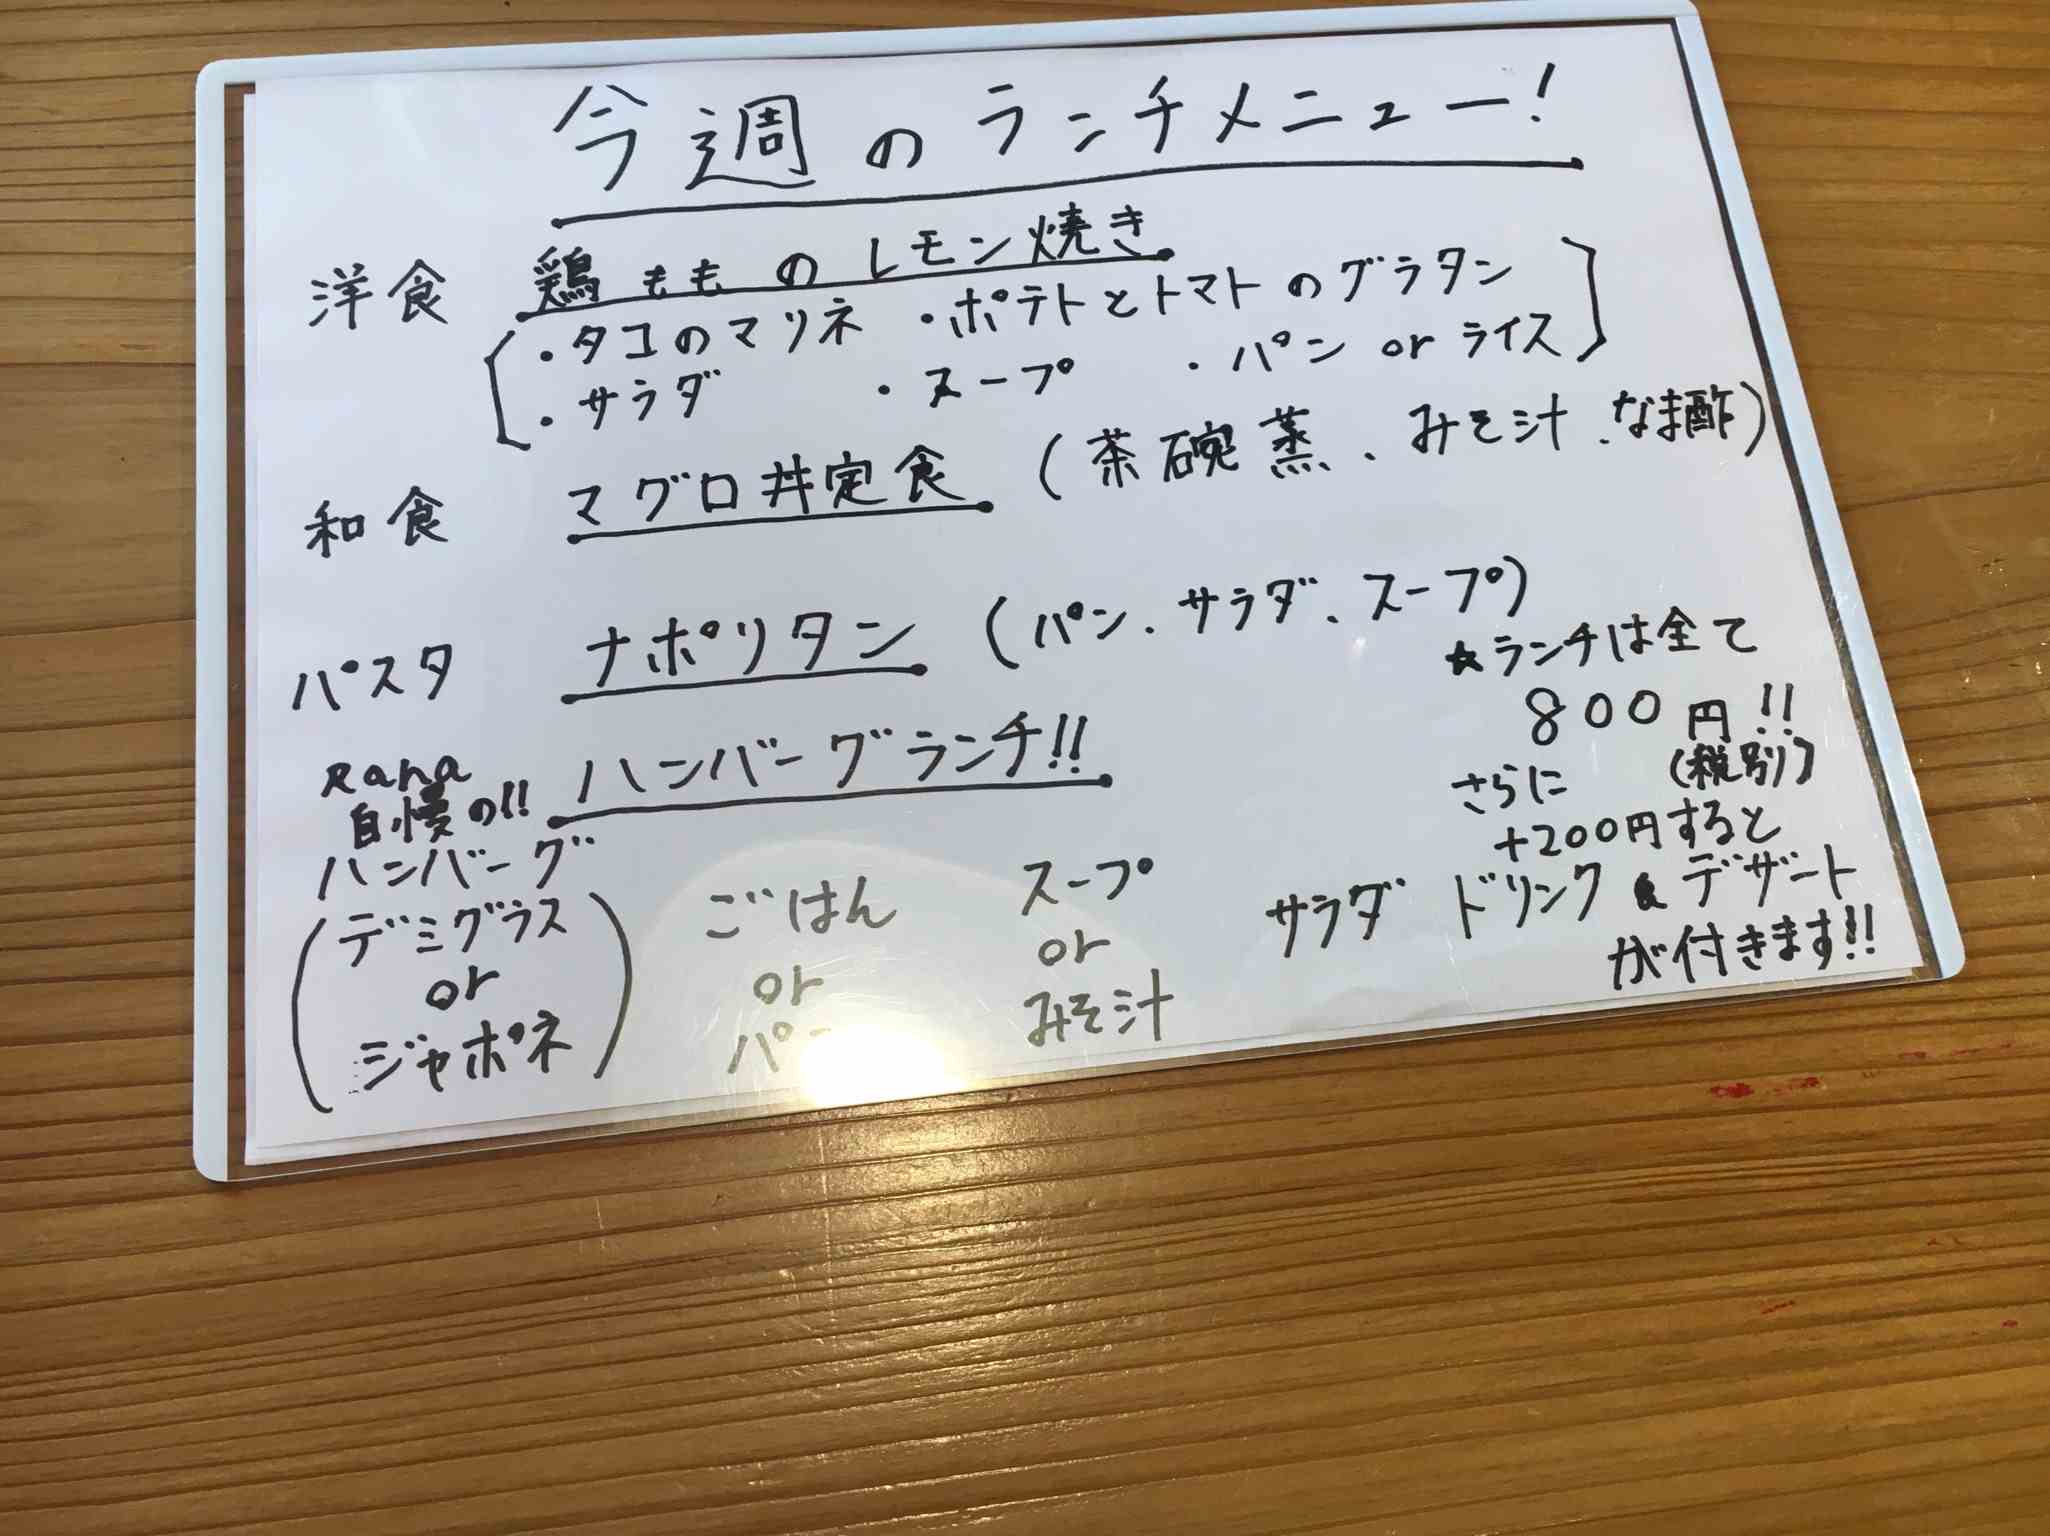 今週のランチメニュー!
洋食 鶏もものレモン焼き
・タコのマリネ ・ポテトとトマトのグラタン
・サラダ ・スープ ・パン or ライス
和食 マグロ丼定食 (茶碗蒸、みそ汁、なま酢)
パスタ ナポリタン (パン、サラダ、スープ)
Rana
自慢の!! ハンバーグランチ!!
ハンバーグ
(デミグラス or ジャポネ)
ごはん
or
スープ
or
みそ汁
★ランチは全て
800円!!
(税別)
さらに
+200円すると
サラダ ドリンク & デザート
が付きます!!